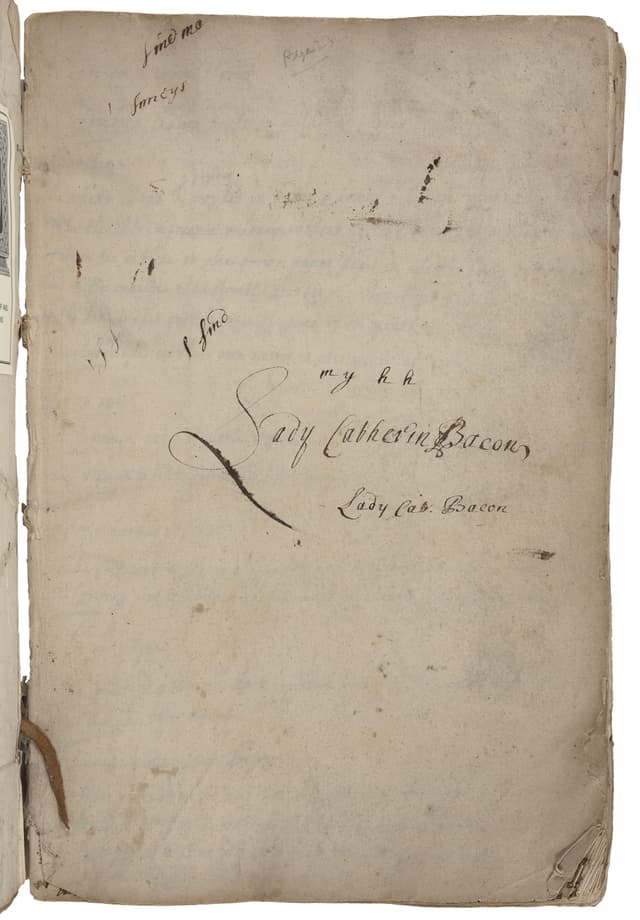 find me
I find
my h h
Lady Catherin Bacon
Lady Cat. Bacon